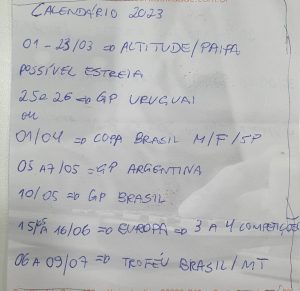 CALENDÁRIO 2023
01 - 23/03 => ALTITUDE/PAIPA
POSSÍVEL ESTREIA
25 e 26 => GP URUGUAI
OU
01/04 => COPA BRASIL M/F/SP
05 A 7/05 = GP ARGENTINA
10/05 => GP BRASIL
15/05 A 16/06 => EUROPA => 3 A 4 COMPETIÇÕES
06 A 09/07 => TROFÉU BRASIL/MT